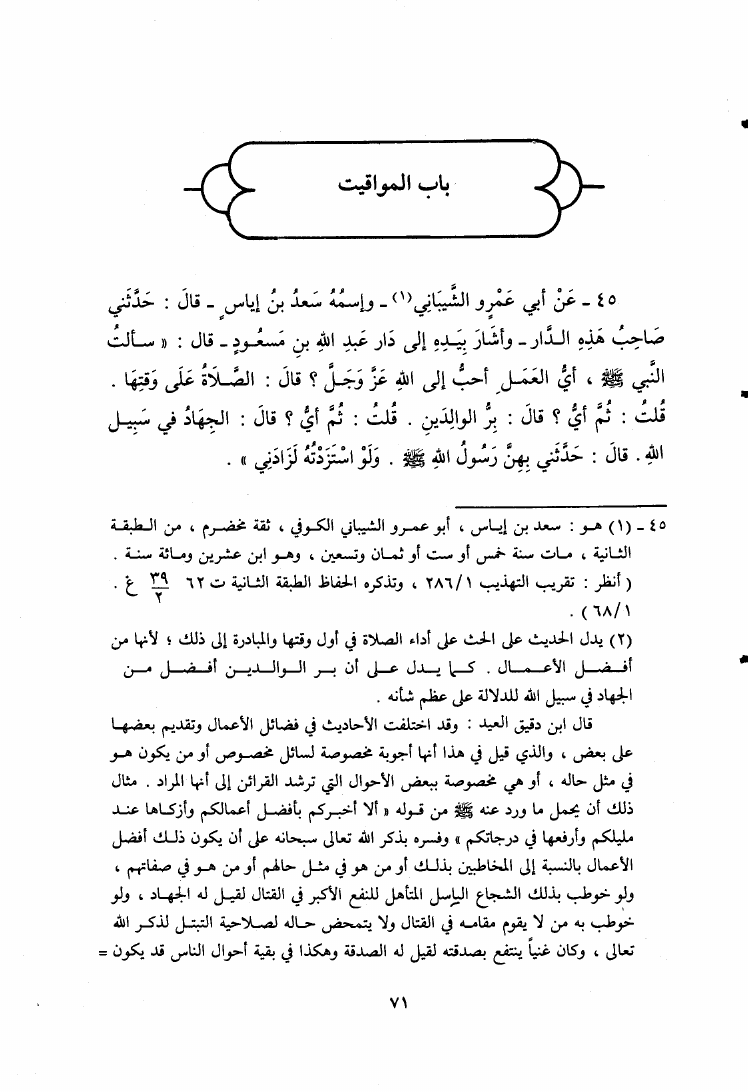 باب المواقيت
٤٥ - عَنْ أبي عَمْرٍو الشَّيبَانِي(١) - وإسمُهُ سَعدُ بنُ إياس ٍ - قالَ : حَدَّثَني
صَاحِبُ هَذِهِ الـدَّار - وأشَارَ بِيَـدِهِ إلى دَار عَبدِ اللهِ بنِ مَسعُـودٍ - قال : « سـألتُ
النَّبي ﷺ ، أيُّ العَمَـل ِ أحبُّ إلى اللهِ عَزَّ وَجَلَّ ؟ قالَ : الصَّـلاةُ عَلَى وَقتِهَا .
قُلتُ : ثُمَّ أيُّ ؟ قالَ : بِرُّ الوالِدَينِ . قُلتُ : ثُمَّ أيُّ ؟ قالَ : الجِهَادُ في سَبِيـل
اللهِ . قالَ : حَدَّثَني بِهِنَّ رَسُولُ اللهِ ﷺ . وَلَوْ اسْتَزَدْتُهُ لَزَادَنِي » .
٤٥ - (١) هـو : سعـد بن إيـاس ، أبو عمـرو الشيباني الكـوفي ، ثقة مخضـرم ، من الـطبقـة
الثـانية ، مـات سنة خمس أو ست أو ثمـان وتسعين ، وهـو ابن عشرين ومـائة سنـة .
( أنظر : تقريب التهذيب ٢٨٦/١ ، وتذكره الحفاظ الطبقة الثانية ت ٦٢ ٣٩/٢ غ .
٦٨/١ ) .
(٢) يدل الحديث على الحث على أداء الصلاة في أول وقتها والمبادرة إلى ذلك ؛ لأنها من
أفـضـل الأعـمـال . كـما يـدل عـلى أن بـر الـوالـديـن أفـضـل مـن
الجهاد في سبيل الله للدلالة على عظم شأنه .
قال ابن دقيق العيد : وقد اختلفت الأحاديث في فضائل الأعمال وتقديم بعضهـا
على بعض ، والذي قيل في هذا أنها أجوبة مخصوصة لسائل مخصـوص أو من يكون هـو
في مثل حاله ، أو هي مخصوصة ببعض الأحوال التي ترشد القرائن إلى أنها المراد . مثال
ذلك أن يحمل ما ورد عنه ﷺ من قـوله « ألا أخبـركم بأفضـل أعمالكم وأزكـاها عنـد
مليلكم وأرفعها في درجاتكم » وفسره بذكر الله تعالى سبحانه على أن يكون ذلـك أفضل
الأعمال بالنسبة إلى المخاطبين بذلـك أو من هو في مثـل حالهم أو من هـو في صفاتهم ،
ولو خوطب بذلك الشجاع الباسل المتأهل للنفع الأكبر في القتال لقيـل له الجهـاد ، ولو
خوطب به من لا يقوم مقامـه في القتال ولا يتمحض حـاله لصـلاحية التبتـل لذكـر الله
تعالى ، وكان غنياً ينتفع بصدقته لقيل له الصدقة وهكذا في بقية أحوال الناس قد يكون =
٧١